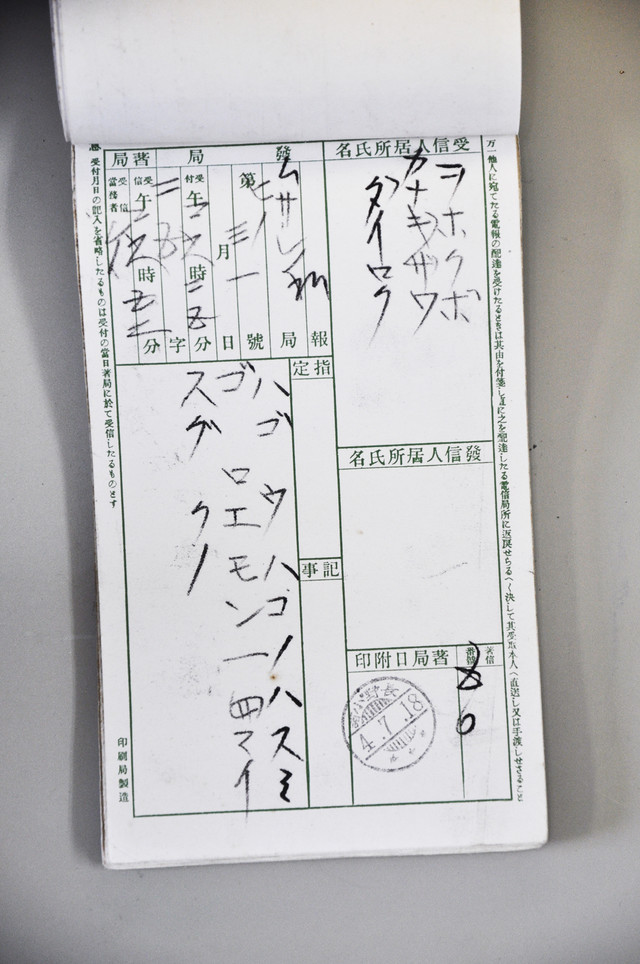 万一他人に宛てたる電報の配達を受けたるときは其由を付箋し直に之を配達したる電信局所に返戻せらるへく決して其受取本人へ直送し又は手渡しせさること
受信人居所氏名
ヲホクボ
カナキザワ
タイロク
發信人居所氏名
著信番號
60
著局日附印
4.7.18
發局
著局
報
ムサシ
局
第
號
月
日
受付
午
時
分
字
受信
午
時
分
當務者
指定
記事
ハゴウハゴノハスミ
ゴロエモン一四マイ
スグクノ
受付月日の記入を省略したるものは受付の當日著局に於て受信したるものとす
印刷局製造